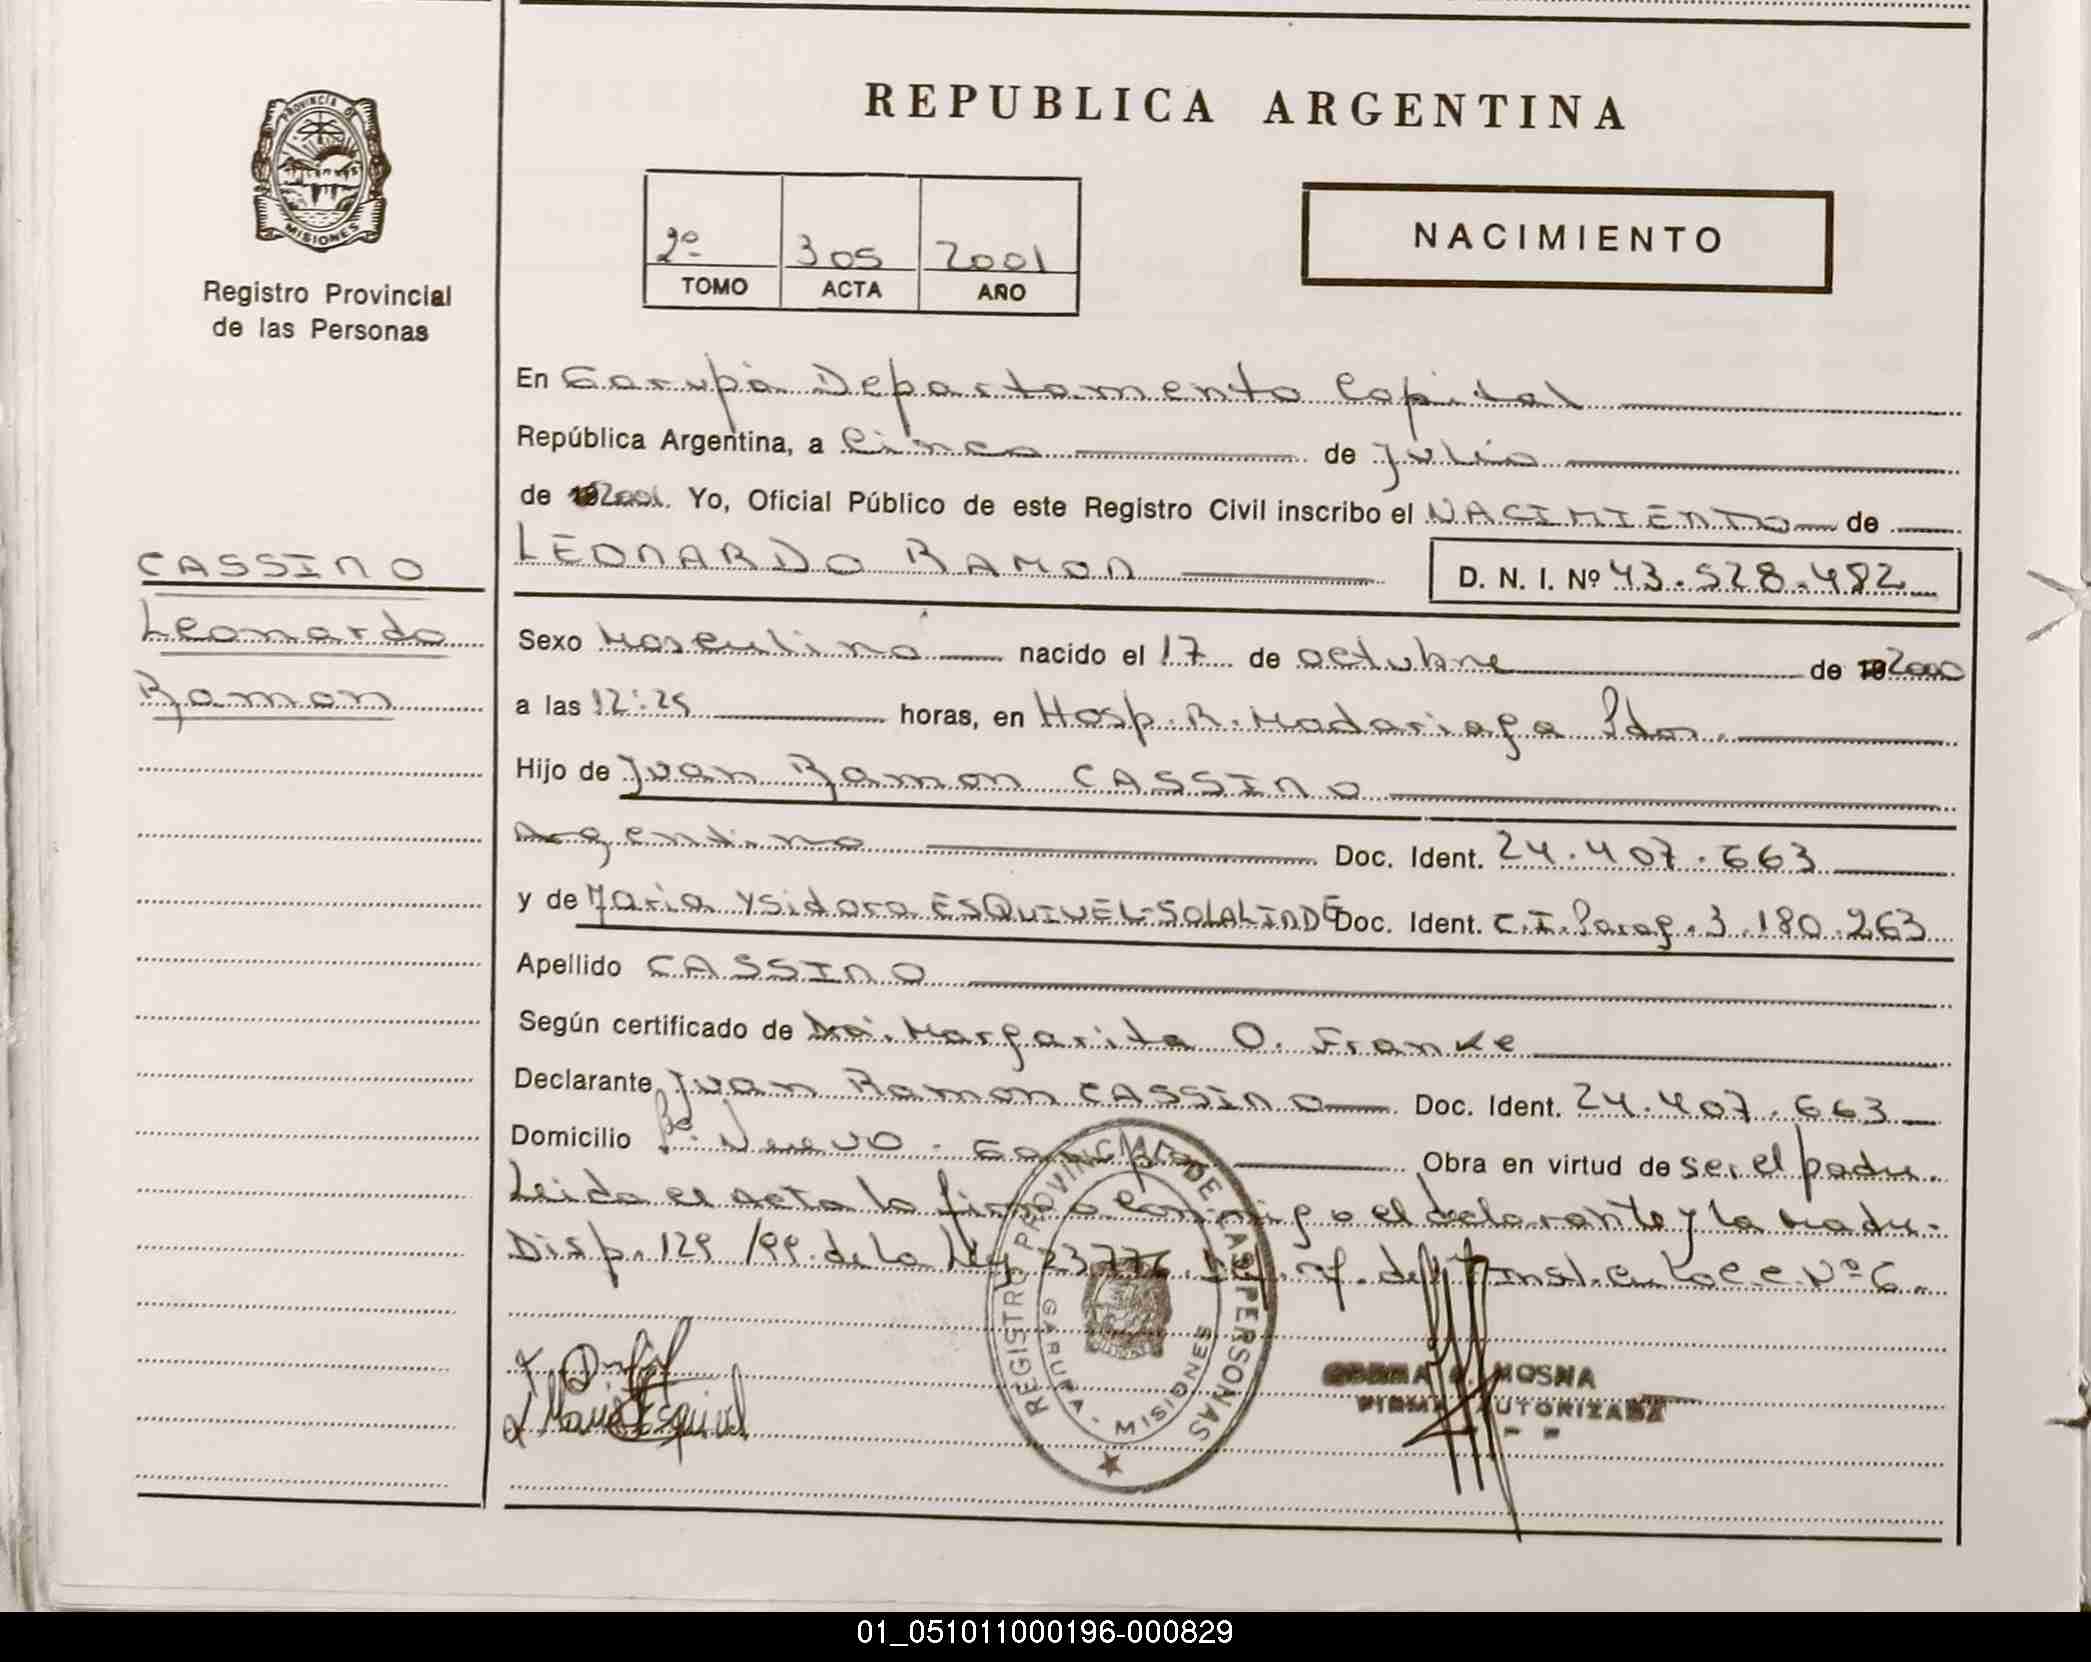 REPUBLICA ARGENTINA
PROVINCIA DE
MISIONES
Registro Provincial
de las Personas
2º 305 2001
TOMO ACTA AÑO
NACIMIENTO
En Garupá Departamento Capital
República Argentina, a Cinco de Julio
de 192001. Yo, Oficial Público de este Registro Civil inscribo el NACIMIENTO de
LEONARDO RAMON D. N. I. Nº 43.528.482
CASSINO
Leonardo
Ramon
Sexo Masculino nacido el 17 de octubre de 192000
a las 12:25 horas, en Hosp. R. Madariaga Pdas.
Hijo de Juan Ramon CASSINO
Argentino Doc. Ident. 24.407.663
y de Maria Ysidora ESQUIVEL-SOLALINDE Doc. Ident. C.I. Parag. 3.180.263
Apellido CASSINO
Según certificado de Dra. Margarita O. Franke
Declarante Juan Ramon CASSINO Doc. Ident. 24.407.663
Domicilio Bº. Nuevo - Garupá Obra en virtud de ser el padre.
Leida el acta la firma conmigo el declarante y la madre.
Disp. 129/99 de la Ley 23776. del Nº 6.
REGISTRO PROVINCIAL DE LAS PERSONAS
GARUPA - MISIONES
Maria Esquivel
MOSNA
FIRMA AUTORIZADA
01_051011000196-000829